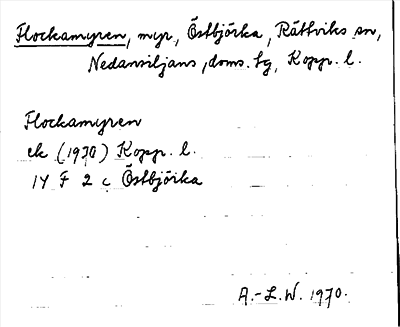 Flockamyren, myr, Östbjörka, Rättviks sn,
Nedansiljans, doms. tg, Kopp. l.
Flockamyren
ek (1970) Kopp. l.
14 F 2 c Östbjörka
A.-L.W. 1970.